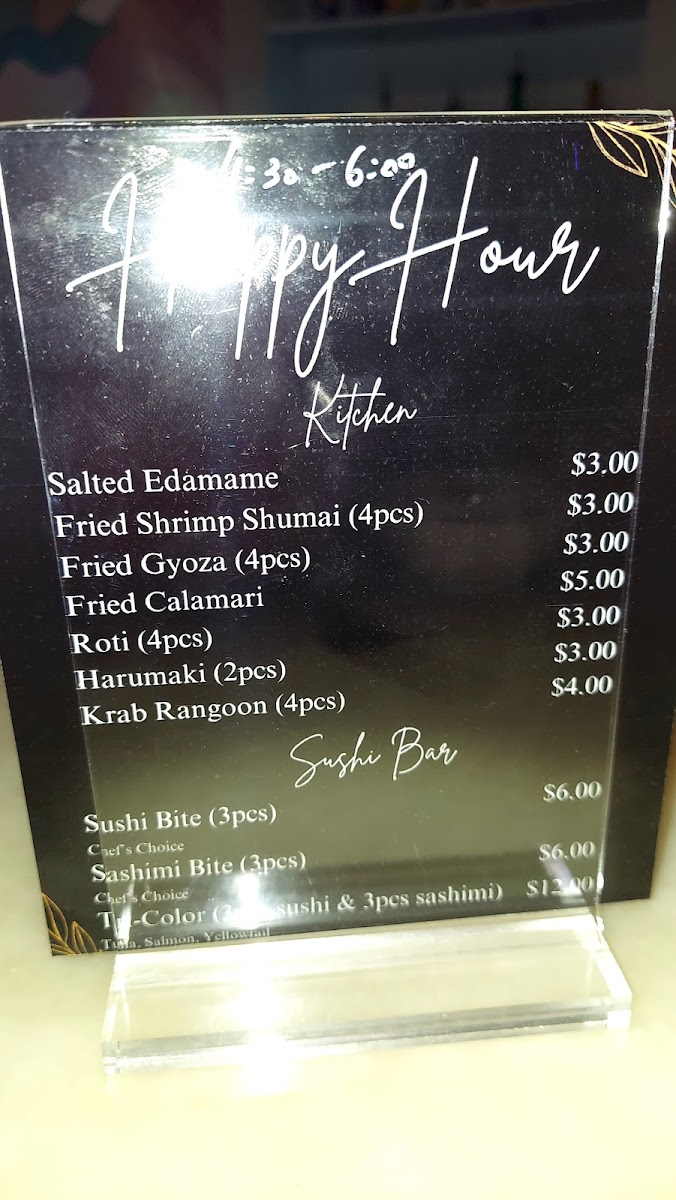 :30 - 6:00
Happy Hour
Kitchen
Salted Edamame $3.00
Fried Shrimp Shumai (4pcs) $3.00
Fried Gyoza (4pcs) $3.00
Fried Calamari $5.00
Roti (4pcs) $3.00
Harumaki (2pcs) $3.00
Krab Rangoon (4pcs) $4.00
Sushi Bar
Sushi Bite (3pcs) $6.00
Chef's Choice
Sashimi Bite (3pcs) $6.00
Chef's Choice
Tri-Color sushi & 3pcs sashimi) $12.00
Tuna, Salmon, Yellowtail